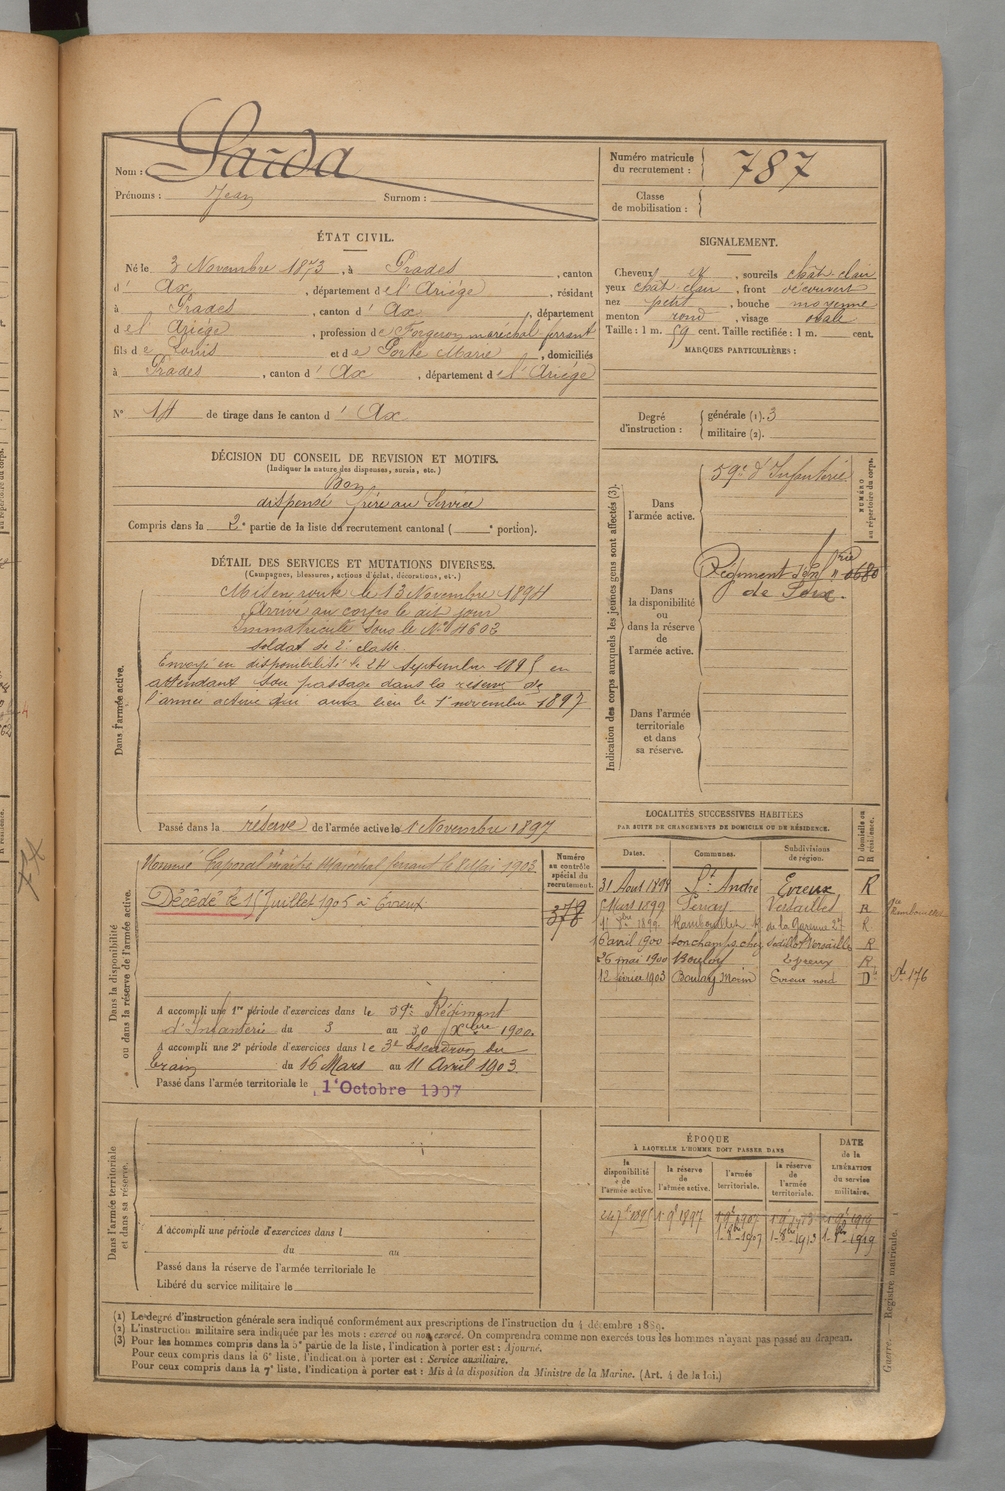 Nom : Sarda
Prénoms : Jean Surnom :
Numéro matricule du recrutement : 787
Classe de mobilisation :
ÉTAT CIVIL.
Né le 3 Novembre 1873, à Prades, canton
d' Ax, département de l'Ariège, résidant
à Prades, canton d' Ax, département
de l' Ariège, profession de Forgeron maréchal ferrant
fils de Louis et de Porte Marie, domiciliés
à Prades, canton d' Ax, département de l'Ariège
N° 14 de tirage dans le canton d' Ax
SIGNALEMENT.
Cheveux et, sourcils chât. clair
yeux chât. clair, front découvert
nez petit, bouche moyenne
menton rond, visage ovale
Taille : 1 m. 59 cent. Taille rectifiée : 1 m. cent.
MARQUES PARTICULIÈRES :
Degré d'instruction :
générale (1). 3
militaire (2).
DÉCISION DU CONSEIL DE REVISION ET MOTIFS.
(Indiquer la nature des dispenses, sursis, etc.)
Bon
dispensé frère au Service
Compris dans la 2e partie de la liste de recrutement cantonal ( e portion).
Indication des corps auxquels les jeunes gens sont affectés (3).
NUMÉRO au répertoire du corps.
Dans l'armée active.
59e d'Infanterie
Dans la disponibilité ou dans la réserve de l'armée active.
Régiment d'Inf rie
de Foix.
Dans l'armée territoriale et dans sa réserve.
DÉTAIL DES SERVICES ET MUTATIONS DIVERSES.
(Campagnes, blessures, actions d'éclat, décorations, etc.)
Dans l'armée active.
Mis en route le 13 Novembre 1894
Arrivé au corps le dit jour
Immatriculé sous le N° 4602
soldat de 2e classe
Envoyé en disponibilité le 24 Septembre 1895 en
attendant son passage dans la réserve de
l'armée active qui aura lieu le 1er novembre 1897
Passé dans la réserve de l'armée active le 1 Novembre 1897
Dans la disponibilité ou dans la réserve de l'armée active.
Numéro au contrôle spécial du recrutement.
Maréchal ferrant le 8 Mai 1903
Décédé le 15 Juillet 1905 à Evreux
A accompli une 1re période d'exercices dans le 39e Régiment
d'Infanterie du 3 au 30 Xbre 1900.
A accompli une 2e période d'exercices dans le 3e Escadron du
train du 16 Mars au 11 Avril 1903.
Passé dans l'armée territoriale le 1er Octobre 1907
LOCALITÉS SUCCESSIVES HABITÉES
PAR SUITE DE CHANGEMENTS DE DOMICILE OU DE RÉSIDENCE.
Dates. Communes. Subdivisions de région. D domicile ou R résidence.
31 Aout 1898 St André Evreux R
Mars 1899 Perray Versailles R
1899 Rambouillet R
16 avril 1900 Sonchamp R
26 mai 1900 Evreux R
12 février 1903 Evreux nord D
Dans l'armée territoriale et dans sa réserve.
A accompli une période d'exercices dans l
du au
Passé dans la réserve de l'armée territoriale le
Libéré du service militaire le
ÉPOQUE
À LAQUELLE L'HOMME DOIT PASSER DANS
la disponibilité de l'armée active. la réserve de l'armée active. l'armée territoriale. la réserve de l'armée territoriale. DATE de la LIBÉRATION du service militaire.
24 7bre 1895 1 9bre 1897 1 9bre 1907 1 9bre 1913 1 9bre 1919
1-8bre-1907 1-8bre-1913 1-8bre-1919
(1) Le degré d'instruction générale sera indiqué conformément aux prescriptions de l'instruction du 4 décembre 1889.
(2) L'instruction militaire sera indiquée par les mots : exercé ou non exercé. On comprendra comme non exercés tous les hommes n'ayant pas passé au drapeau.
(3) Pour les hommes compris dans la 5e partie de la liste, l'indication à porter est : Ajourné.
Pour ceux compris dans la 6e liste, l'indication à porter est : Service auxiliaire.
Pour ceux compris dans la 7e liste, l'indication à porter est : Mis à la disposition du Ministre de la Marine. (Art. 4 de la loi.)
Guerre. — Registre matricule.